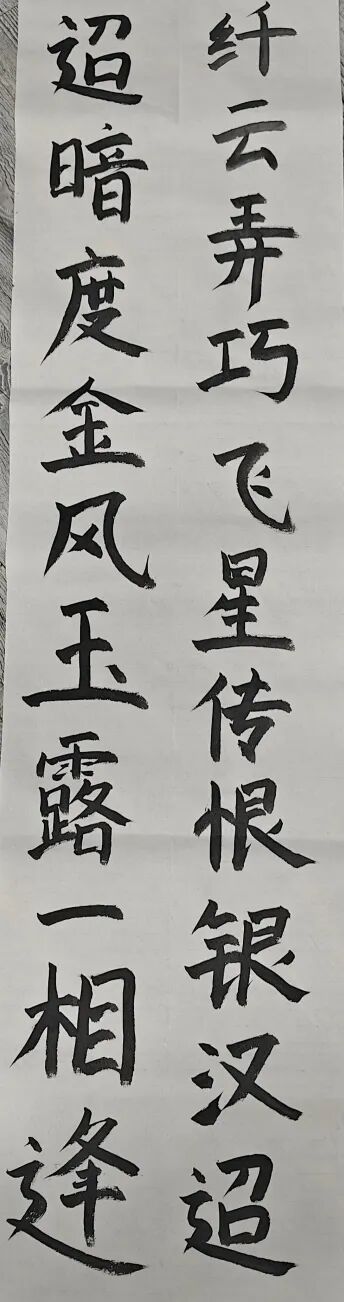 纤云弄巧飞星传恨银汉迢
迢暗度金风玉露一相逢